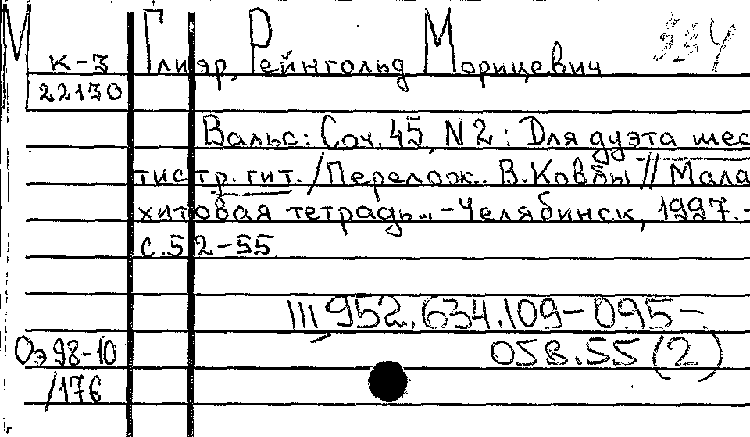 М
к-3
22130
Глиэр, Рейнгольд Морицевич
334
Вальс: Соч. 45, N 2: Для дуэта шес
тистр. гит. / Перелож. В. Ковбы // Мала
хитовая тетрадь... - Челябинск, 1997. -
с. 52-55
Ш 952.634.109-095-
058.55(2)
Оэ 98-10
/176